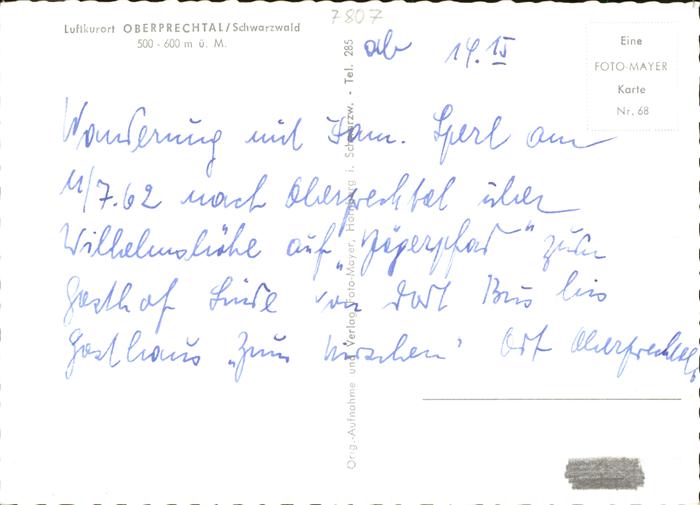 7807
Luftkurort OBERPRECHTAL/Schwarzwald
500 - 600 m ü. M.
ab 14.15
Eine
FOTO-MAYER
Karte
Nr. 68
Wanderung mit Fam. Sperl am
11/7.62 nach Oberprechtal über
Wilhelmshöhe auf „Jägerpfad" zum
Gasthof Linde von dort Bus bis
Gasthaus „Zum Hirschen" Ort Oberprechtal
Orig.-Aufnahme und Verlag Foto-Mayer, Hornberg i. Schwarzw. - Tel. 285